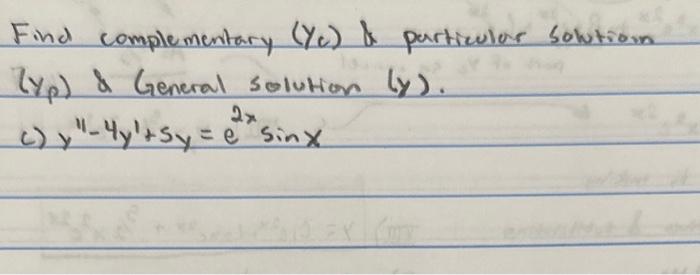 Find complementary (Yc) & particular solution
(yp) & General solution (y).
c) y"-4y'+5y = e^2x sinx